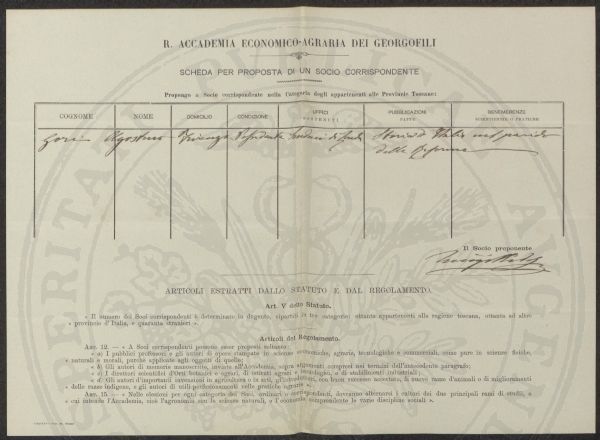 R. ACCADEMIA ECONOMICO-AGRARIA DEI GEORGOFILI
SCHEDA PER PROPOSTA DI UN SOCIO CORRISPONDENTE
Propongo a Socio corrispondente nella Categoria degli appartenenti alle Provincie Toscane:
COGNOME NOME DOMICILIO CONDIZIONE UFFICI SOSTENUTI PUBBLICAZIONI FATTE BENEMERENZE SCIENTIFICHE O PRATICHE
Gori Agostino Firenze Possidente Storia d'Italia nel periodo
delle Riforme
Il Socio proponente
ARTICOLI ESTRATTI DALLO STATUTO E DAL REGOLAMENTO.
Art. V dello Statuto.
« Il numero dei Soci corrispondenti è determinato in dugento, ripartiti in tre categorie: ottanta appartenenti alla regione toscana, ottanta ad altre
« provincie d'Italia, e quaranta stranieri ».
Articoli del Regolamento.
ART. 12. — « A Soci corrispondenti possono esser proposti soltanto:
« a) I pubblici professori e gli autori di opere stampate in scienze economiche, agrarie, tecnologiche e commerciali, come pure in scienze fisiche,
« naturali e morali, purchè applicate agli oggetti di quelle;
« b) Gli autori di memorie manoscritte, inviate all'Accademia, sopra argomenti compresi nei termini dell'antecedente paragrafo;
« c) I direttori scientifici d'Orti botanici e agrari, di istituti agrari e tecnologici, e di stabilimenti industriali;
« d) Gli autori d'importanti invenzioni in agricoltura o in arti, gl'introduttori, con buon successo accertato, di nuove razze d'animali o di miglioramenti
« delle razze indigene, e gli autori di utili perfezionamenti nelle pratiche agrarie ».
ART. 15. — « Nelle elezioni per ogni categoria dei Soci, ordinari o corrispondenti, dovranno alternarsi i cultori dei due principali rami di studii, a
« cui intende l'Accademia, cioè l'agronomia con le scienze naturali, o l'economia comprendente le varie discipline sociali ».